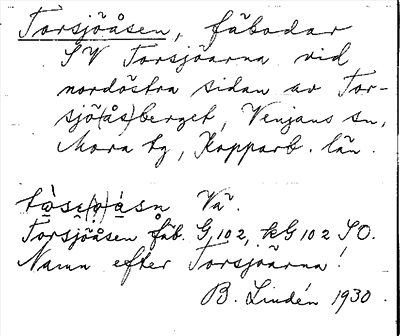 Torsjöåsen, fäbodar
SV Torsjöarna vid
nordöstra sidan av Tor-
sjö(ås)berget, Venjans sn,
Mora tg, Kopparb. län.
Va.
Torsjöåsen fäb. G 102, hG 102 SO.
Namn efter Torsjöarna!
B. Lindén 1930.